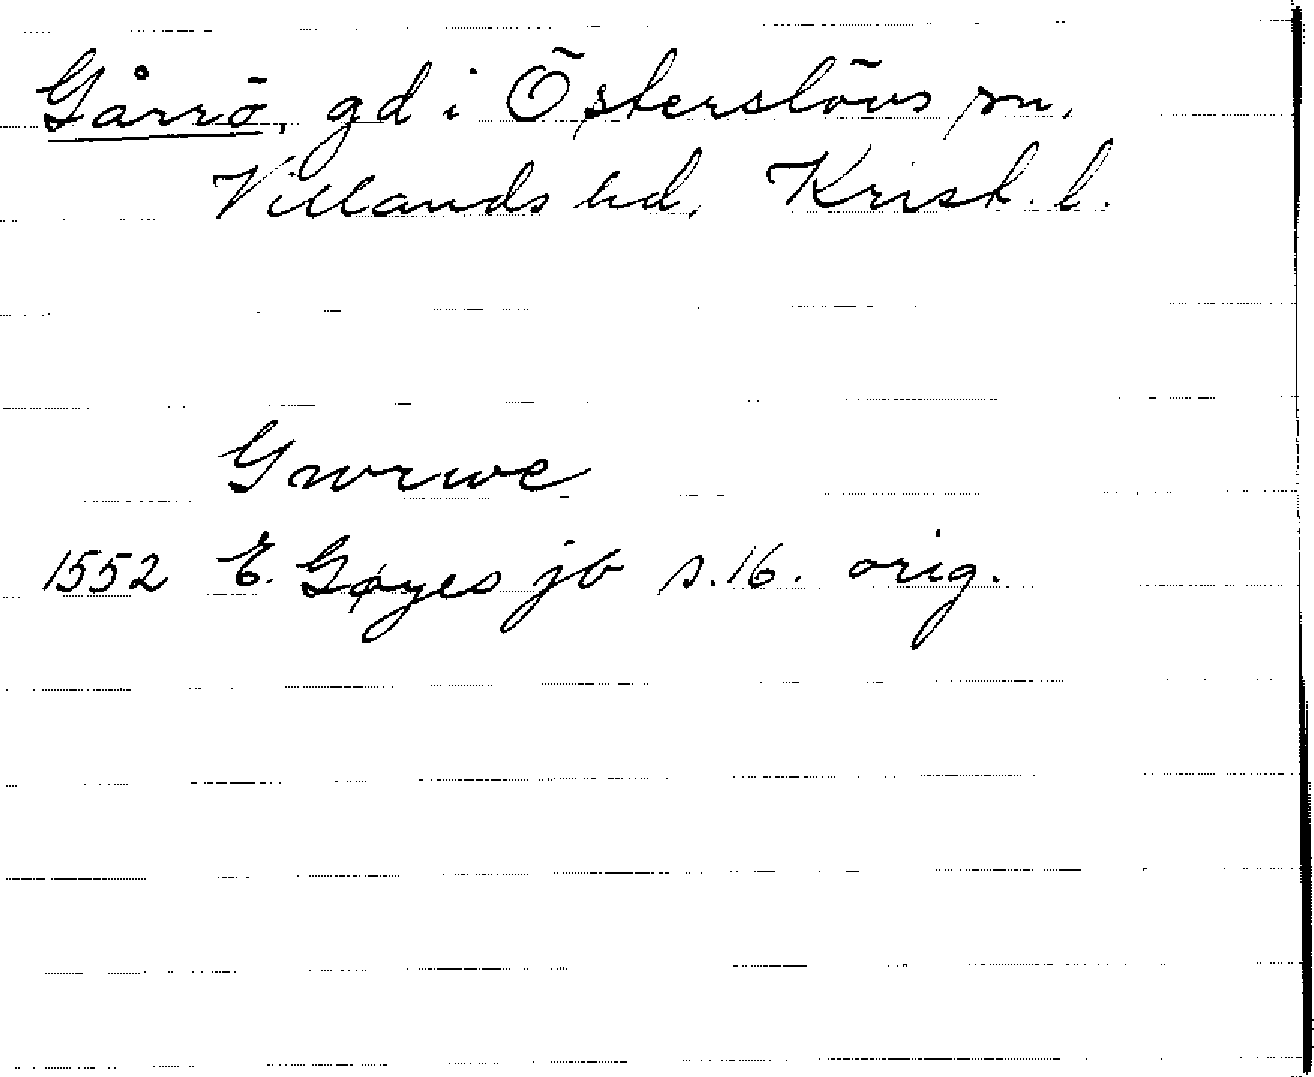 Gårrö, gd i Österslövs sn.
Villands hd, Krist. l.
Gwrwe
1552 E. Gøyes jb s.16. orig.